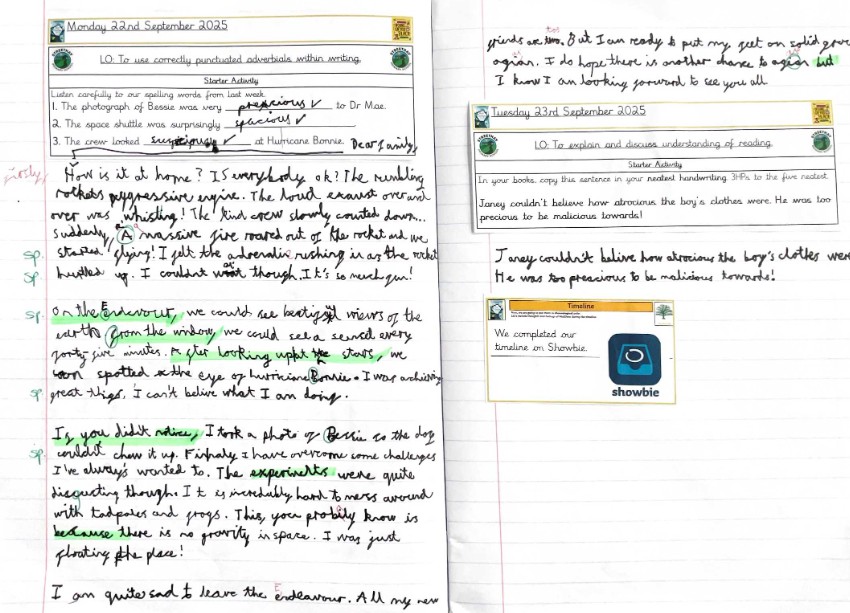 Monday 22nd September 2025
LO: To use correctly punctuated adverbials within writing.
Starter Activity
Listen carefully to our spelling words from last week.
1. The photograph of Bessie was very preacious ✓ to Dr Mae.
2. The space shuttle was surprisingly spacious ✓
3. The crew looked suspiciously ✓ at Hurricane Bonnie.
Dear family,
firstly,
How is it at home? Is everybody ok? The rumbling
rockets aggressive engine. The loud exaust over and
over was whistling! The kind crew slowly counted down...
suddenly, A massive fire roared out of the rocket and we
sp. started flying! I felt the adrenalin rushing in as the rocket
sp hurtled up. I couldn't wait though. It's so much fun!
sp. On the Endeavour, we could see beatiful views of the
earth. From the window, we could see a sunset every
forty five minutes. After looking up at the stars, we
soon spotted the eye of hurricine Bonnie. I was achieving
sp. great things, I can't belive what I am doing.
If you didn't notice, I took a photo of Bessie so the dog
sp. couldn't chew it up. Finhaly I have overcome some challenges
I've always wanted to. The experiments were quite
disgusting though. It is incredubly hard to mess around
with tadpoles and frogs. This, you probily know is
because there is no gravity in space. I was just
floating the place!
I am quite sad to leave the Endeavour. All my new
friends are too. But I am ready to put my feet on solid
agian. I do hope there is another chance to agian but
I know I am looking forward to see you all
Tuesday 23rd September 2025
LO: To explain and discuss understanding of reading.
Starter Activity
In your books, copy this sentence in your neatest handwriting 3HPs to the five neatest.
Janey couldn't believe how atrocious the boy's clothes were. He was too
precious to be malicious towards!
Janey couldn't belive how atrocious the boy's clothes were
He was too preacious to be malicious towards!
Timeline
We completed our
timeline on Showbie.
showbie